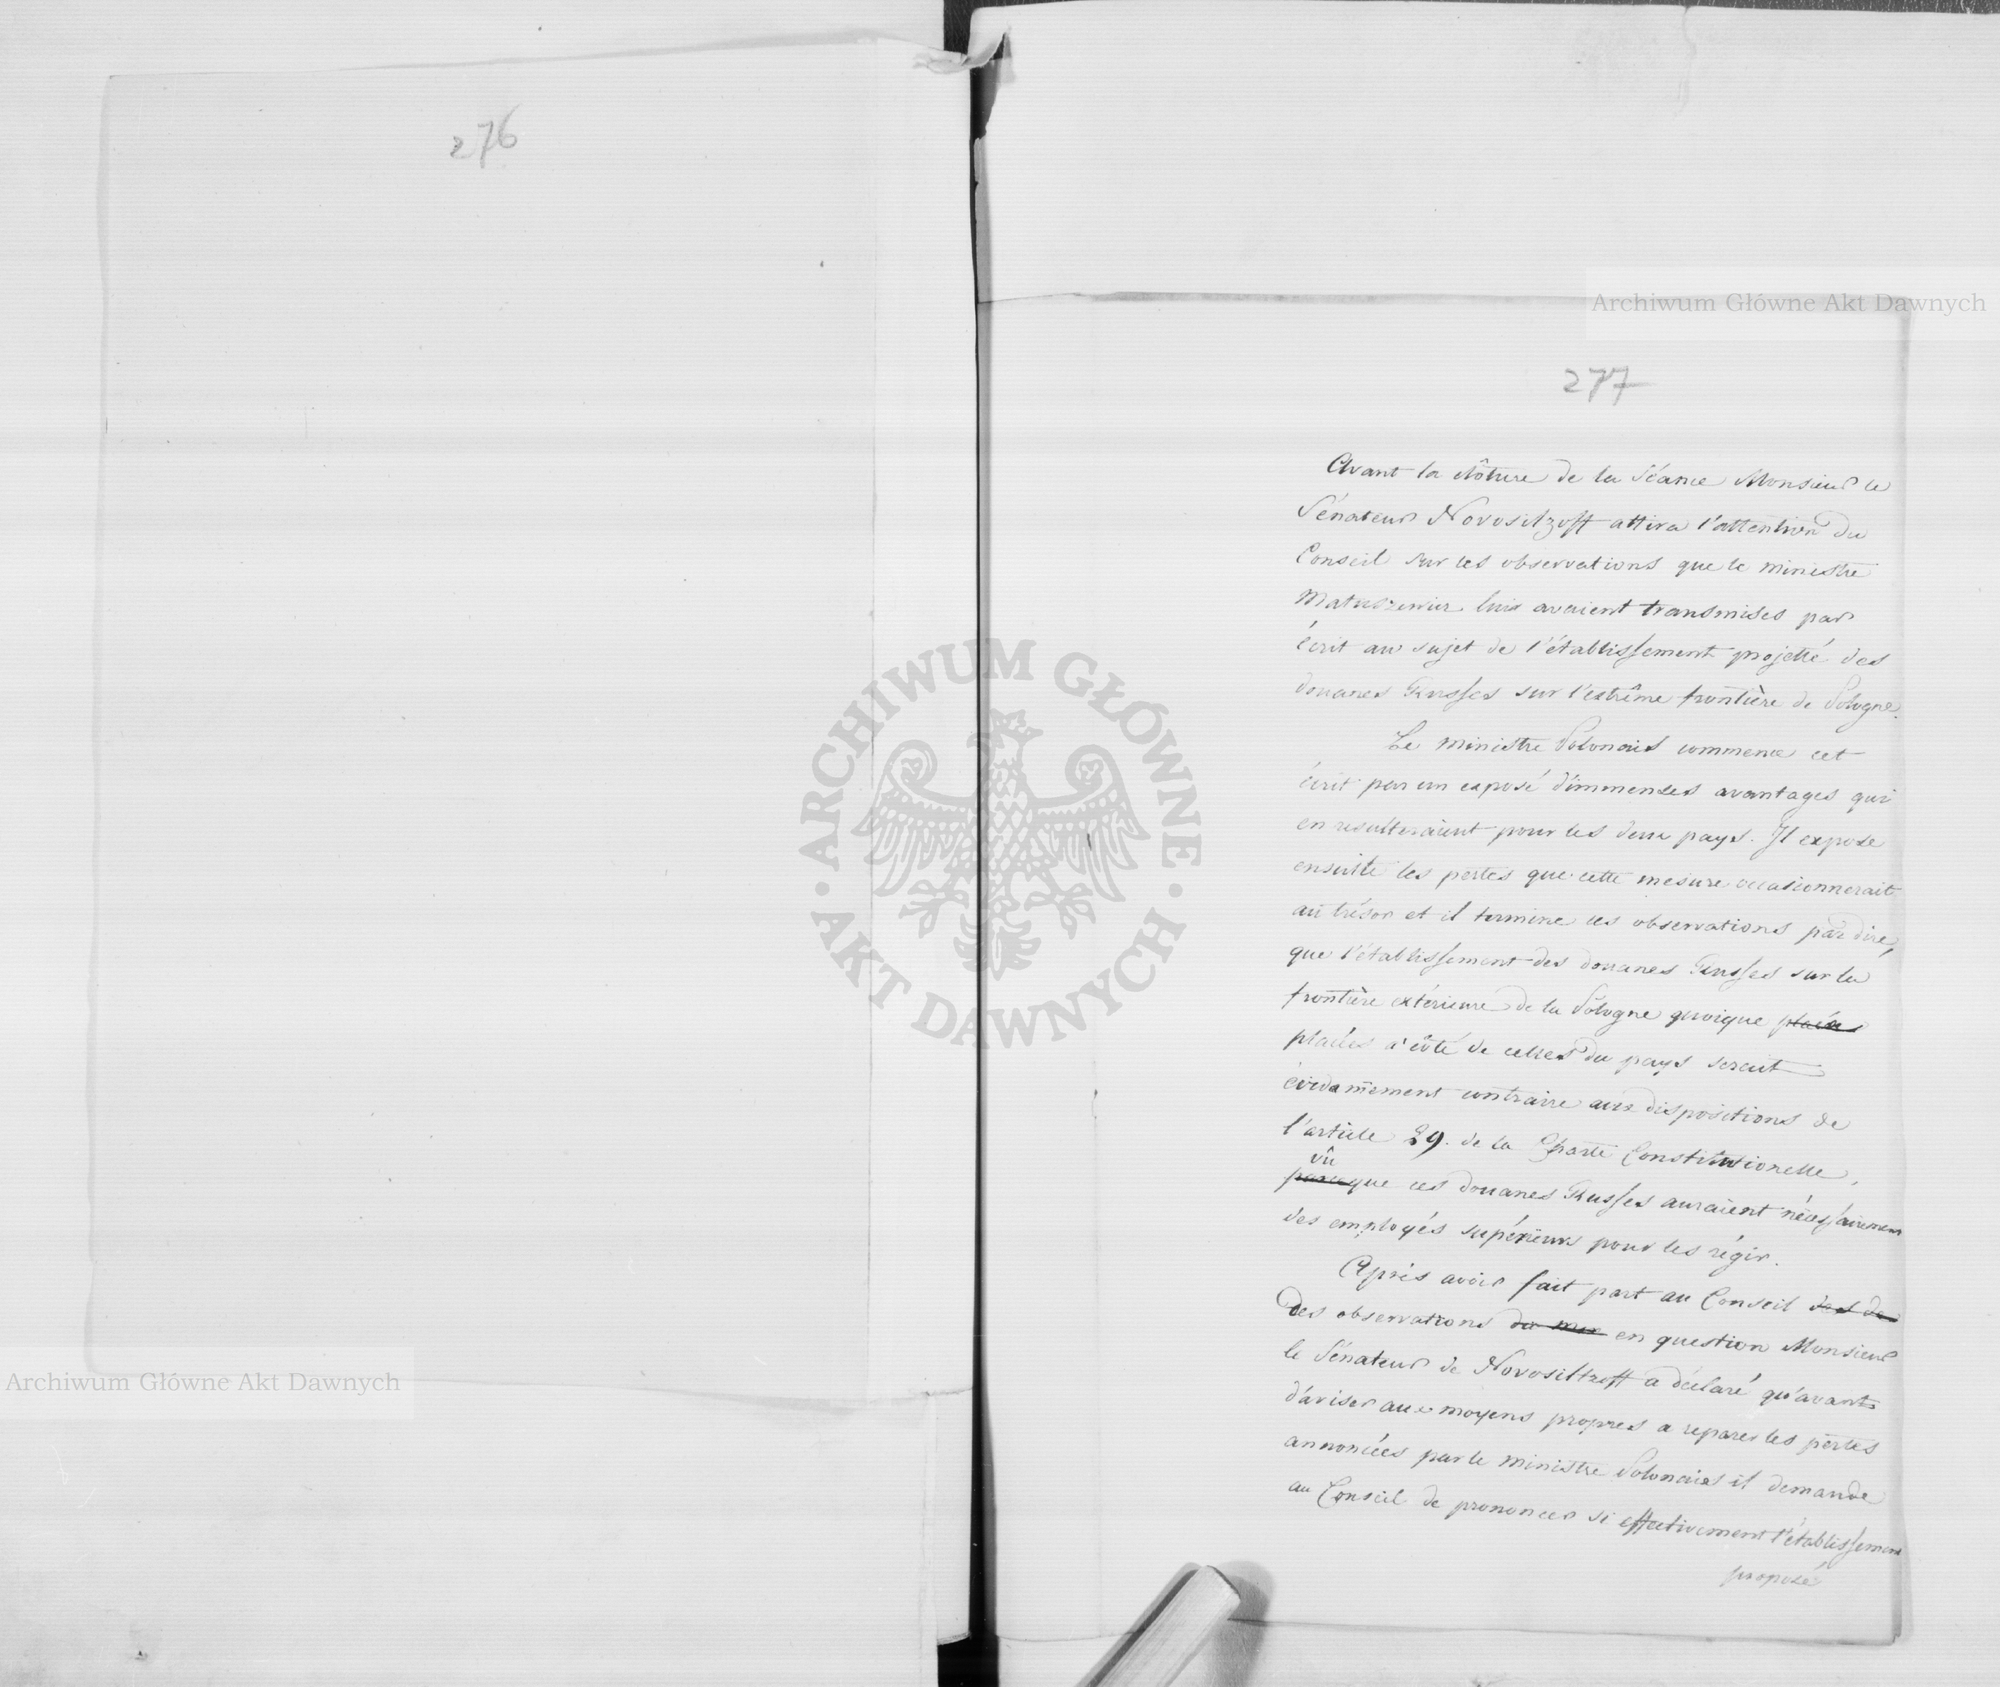 276
Archiwum Główne Akt Dawnych
277
Avant la clôture de la Séance Monsieur le
Sénateur Novosilzoff attira l'attention du
Conseil sur les observations que le ministre
Matuszewicz lui avaient transmises par
écrit au sujet de l'établissement projetté des
douanes Russes sur l'extrême frontière de Pologne.
Le ministre Polonais commence cet
écrit par un exposé d'immenses avantages qui
en resulteraient pour les deux pays. Il expose
ensuite les pertes que cette mesure occasionnerait
au trésor et il termine ces observations par dire,
que l'établissement des douanes Russes sur la
frontière extérieure de la Pologne quoique
placées a côté de celles du pays serait
évidamment contraire aux dispositions de
l'article 29. de la Charte Constitutionelle,
vû
parceque ces douanes Russes auraient nécessairement
des employés supérieurs pour les régir.
Après avoir fait part au Conseil
Des observations en question Monsieur
le Sénateur de Novosiltzoff a déclaré qu'avant
d'aviser aux moyens propres a reparer les pertes
annoncées par le ministre Polonais il demande
au Conseil de prononcer si effectivement l'établissement
proposé
ARCHIWUM GŁÓWNE
AKT DAWNYCH
Archiwum Główne Akt Dawnych